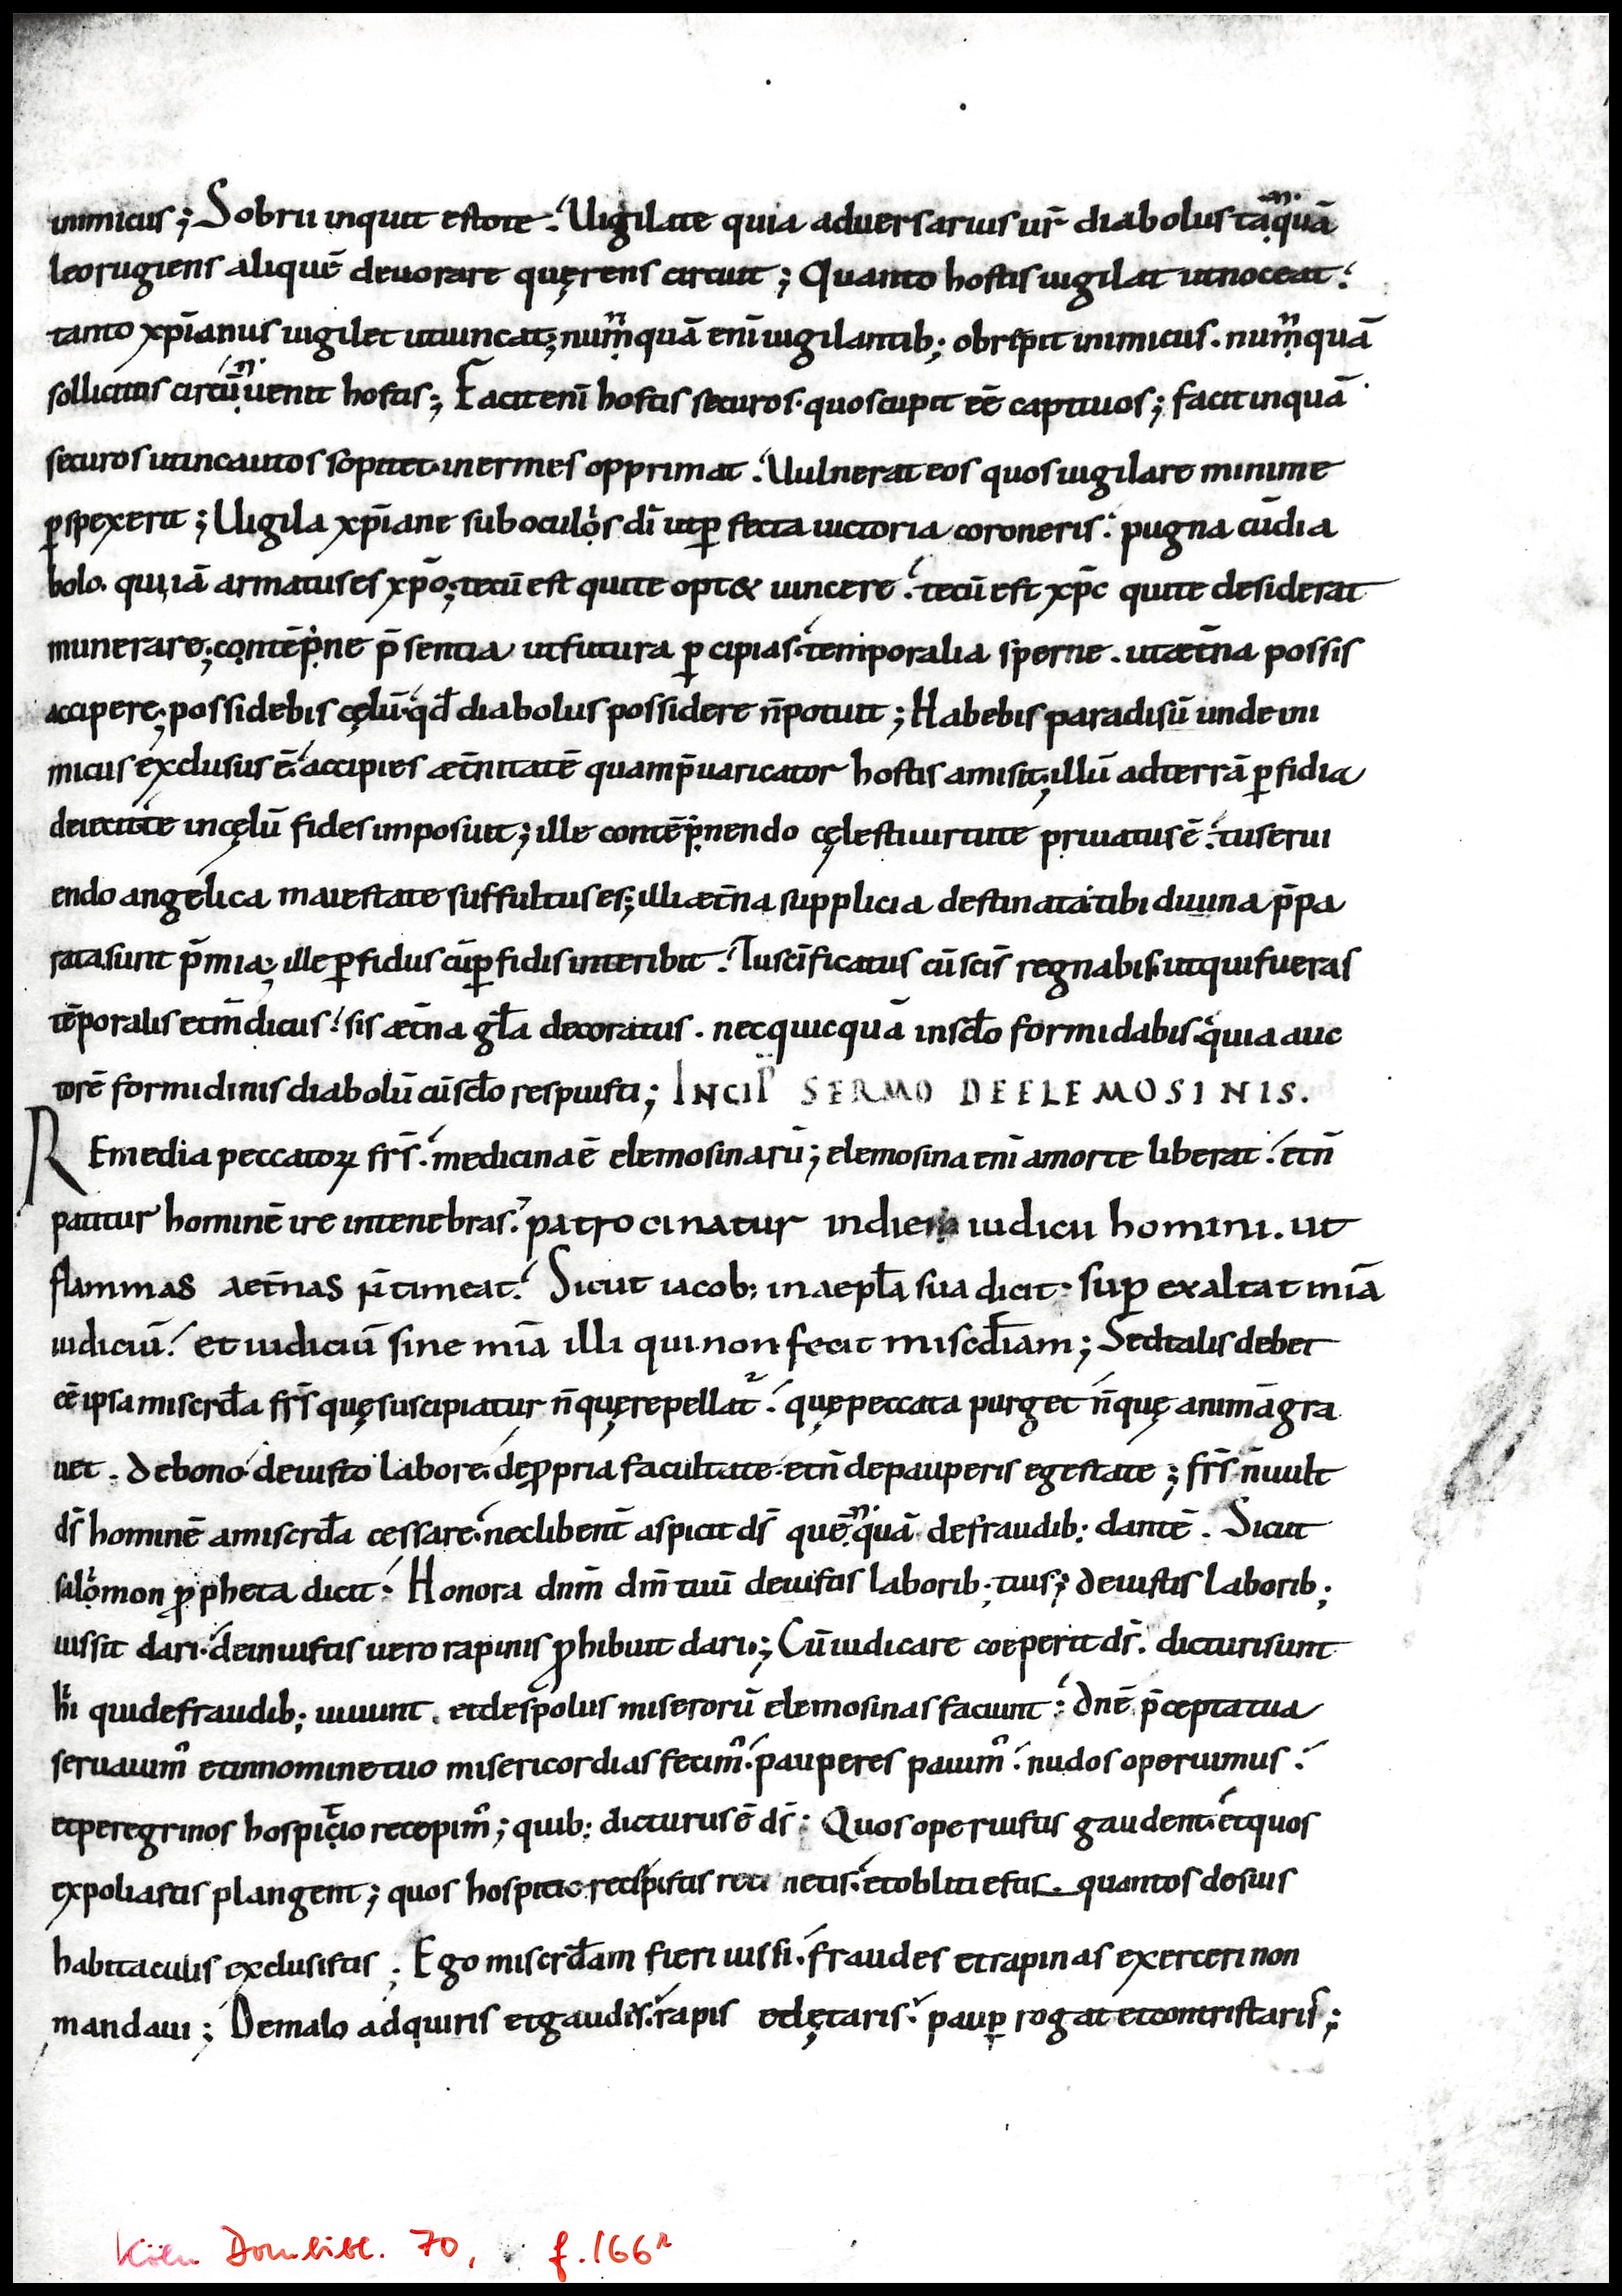 inimicus; Sobrii inquit estote. Uigilate quia aduersarius ur̄ diabolus tāquā
leo rugiens aliquē deuorare quęrens circuit; Quanto hostis uigilat ut noceat.
tanto xp̄ianus uigilet ut uincat; nūmquā enī uigilantib; obrepit inimicus. nūmquā
sollicitus circūuenit hostis; Facit enī hostis securos. quos cupit eē captiuos; facit inquā
securos ut incautos sopitet. inermes opprimat. Uulnerat eos quos uigilare minime
ꝑspexerit; Uigila xp̄iane sub oculos dī ut ꝑfecta uictoria coroneris. pugna cū dia
bolo. qui iā armatus es xp̄o; tecū est qui te optet uincere. tecū est xp̄c qui te desiderat
munerare; contēpne p̄sentia ut futura ꝑcipias. temporalia sperne. ut ætn̄a possis
accipere; possidebis cęlū. qd̄ diabolus possidere n̄ potuit; Habebis paradisū unde ini
micus exclusus ē. accipies ætn̄itatē quam p̄uaricator hostis amisit; illū ad terrā ꝑfidia
deiecit te in cęlū fides imposuit; ille contēpnendo cęlesti uirtute priuatus ē. tu serui
endo angelica maiestate suffultus es; illi ætn̄a supplicia destinata. tibi diuina p̄pa
rata sunt p̄mia; ille ꝑfidus cū ꝑfidis interibit. Tu scīficatus cū scīs regnabis. ut qui fueras
tēporalis et m̄dicus. sis ætn̄a gl̄a decoratus. nec quicquā in scl̄o formidabis. quia auc
torē formidinis diabolū cū scl̄o respuisti; INCIP̄ SERMO DE ELEMOSINIS.
REmedia peccatoꝝ frs̄. medicina ē elemosinarū; elemosina enī a morte liberat. et n̄
patitur hominē ire in tenebras. patrocinatur in diem iudicii homini. ut
flammas aetn̄as n̄ timeat. Sicut iacob; in aepl̄a sua dicit. suꝑexaltat mīa
iudiciū. et iudiciū sine mīa illi qui non fecit miscd̄iam; Sed talis debet
eē ipsa misrcd̄a frs̄ quę suscipiatur n̄ quę repellat̄. quę peccata purget n̄ quę animā gra
uet. de bono. de iusto labore. de ꝓpria facultate. et n̄ de pauperis egestate; frs̄ n̄ uult
ds̄ hominē a misrcd̄a cessare. nec libent̄ aspicit ds̄ quēquā de fraudib; dantē. Sicut
salomon ꝓpheta dicit. Honora dnm̄ dm̄ tuū de iustis laborib; tuis; de iustis laborib;
iussit dari. de iniustis uero rapinis ꝓhibuit dari; Cū iudicare coeperit ds̄. dicturi sunt
hi qui de fraudib; uiuunt. et de spolus miserorū elemosinas faciunt. dnē p̄cepta tua
seruauim᷒ et in nomine tuo misericordias fecim᷒. pauperes pauim᷒. nudos operuimus.
et peregrinos hospicio recepim᷒; quib; dicturus ē ds̄. Quos operuistis gaudent. et quos
expoliastis plangent; quos hospitio recipistis retinetis. et obliti estis quantos de suis
habitaculis exclusistis; Ego misrcd̄am fieri iussi. fraudes et rapinas exerceri non
mandaui; De malo adquiris et gaudis. rapis et lętaris. pauꝑ rogat et contristaris;
Köln Dombibl. 70, f. 166r